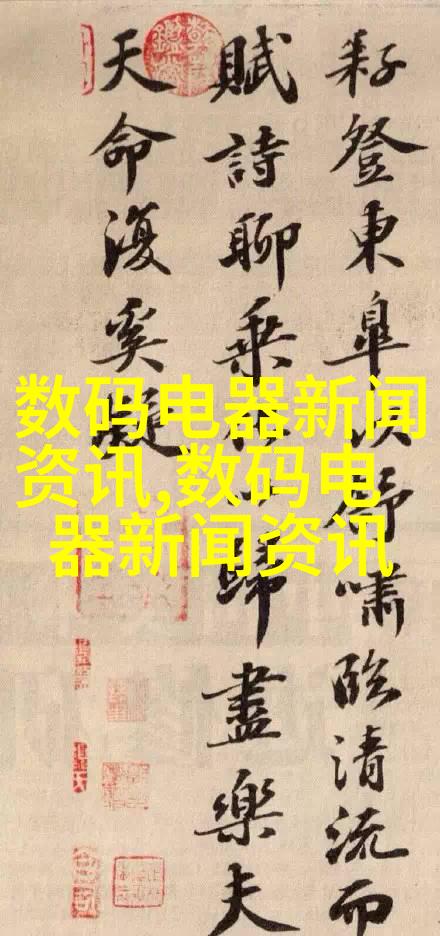 耔登東皐以舒嘯臨清流而
賦詩聊乘化以歸盡樂夫
天命復奚疑
数码电器新闻
资讯,数码电
器新闻资讯